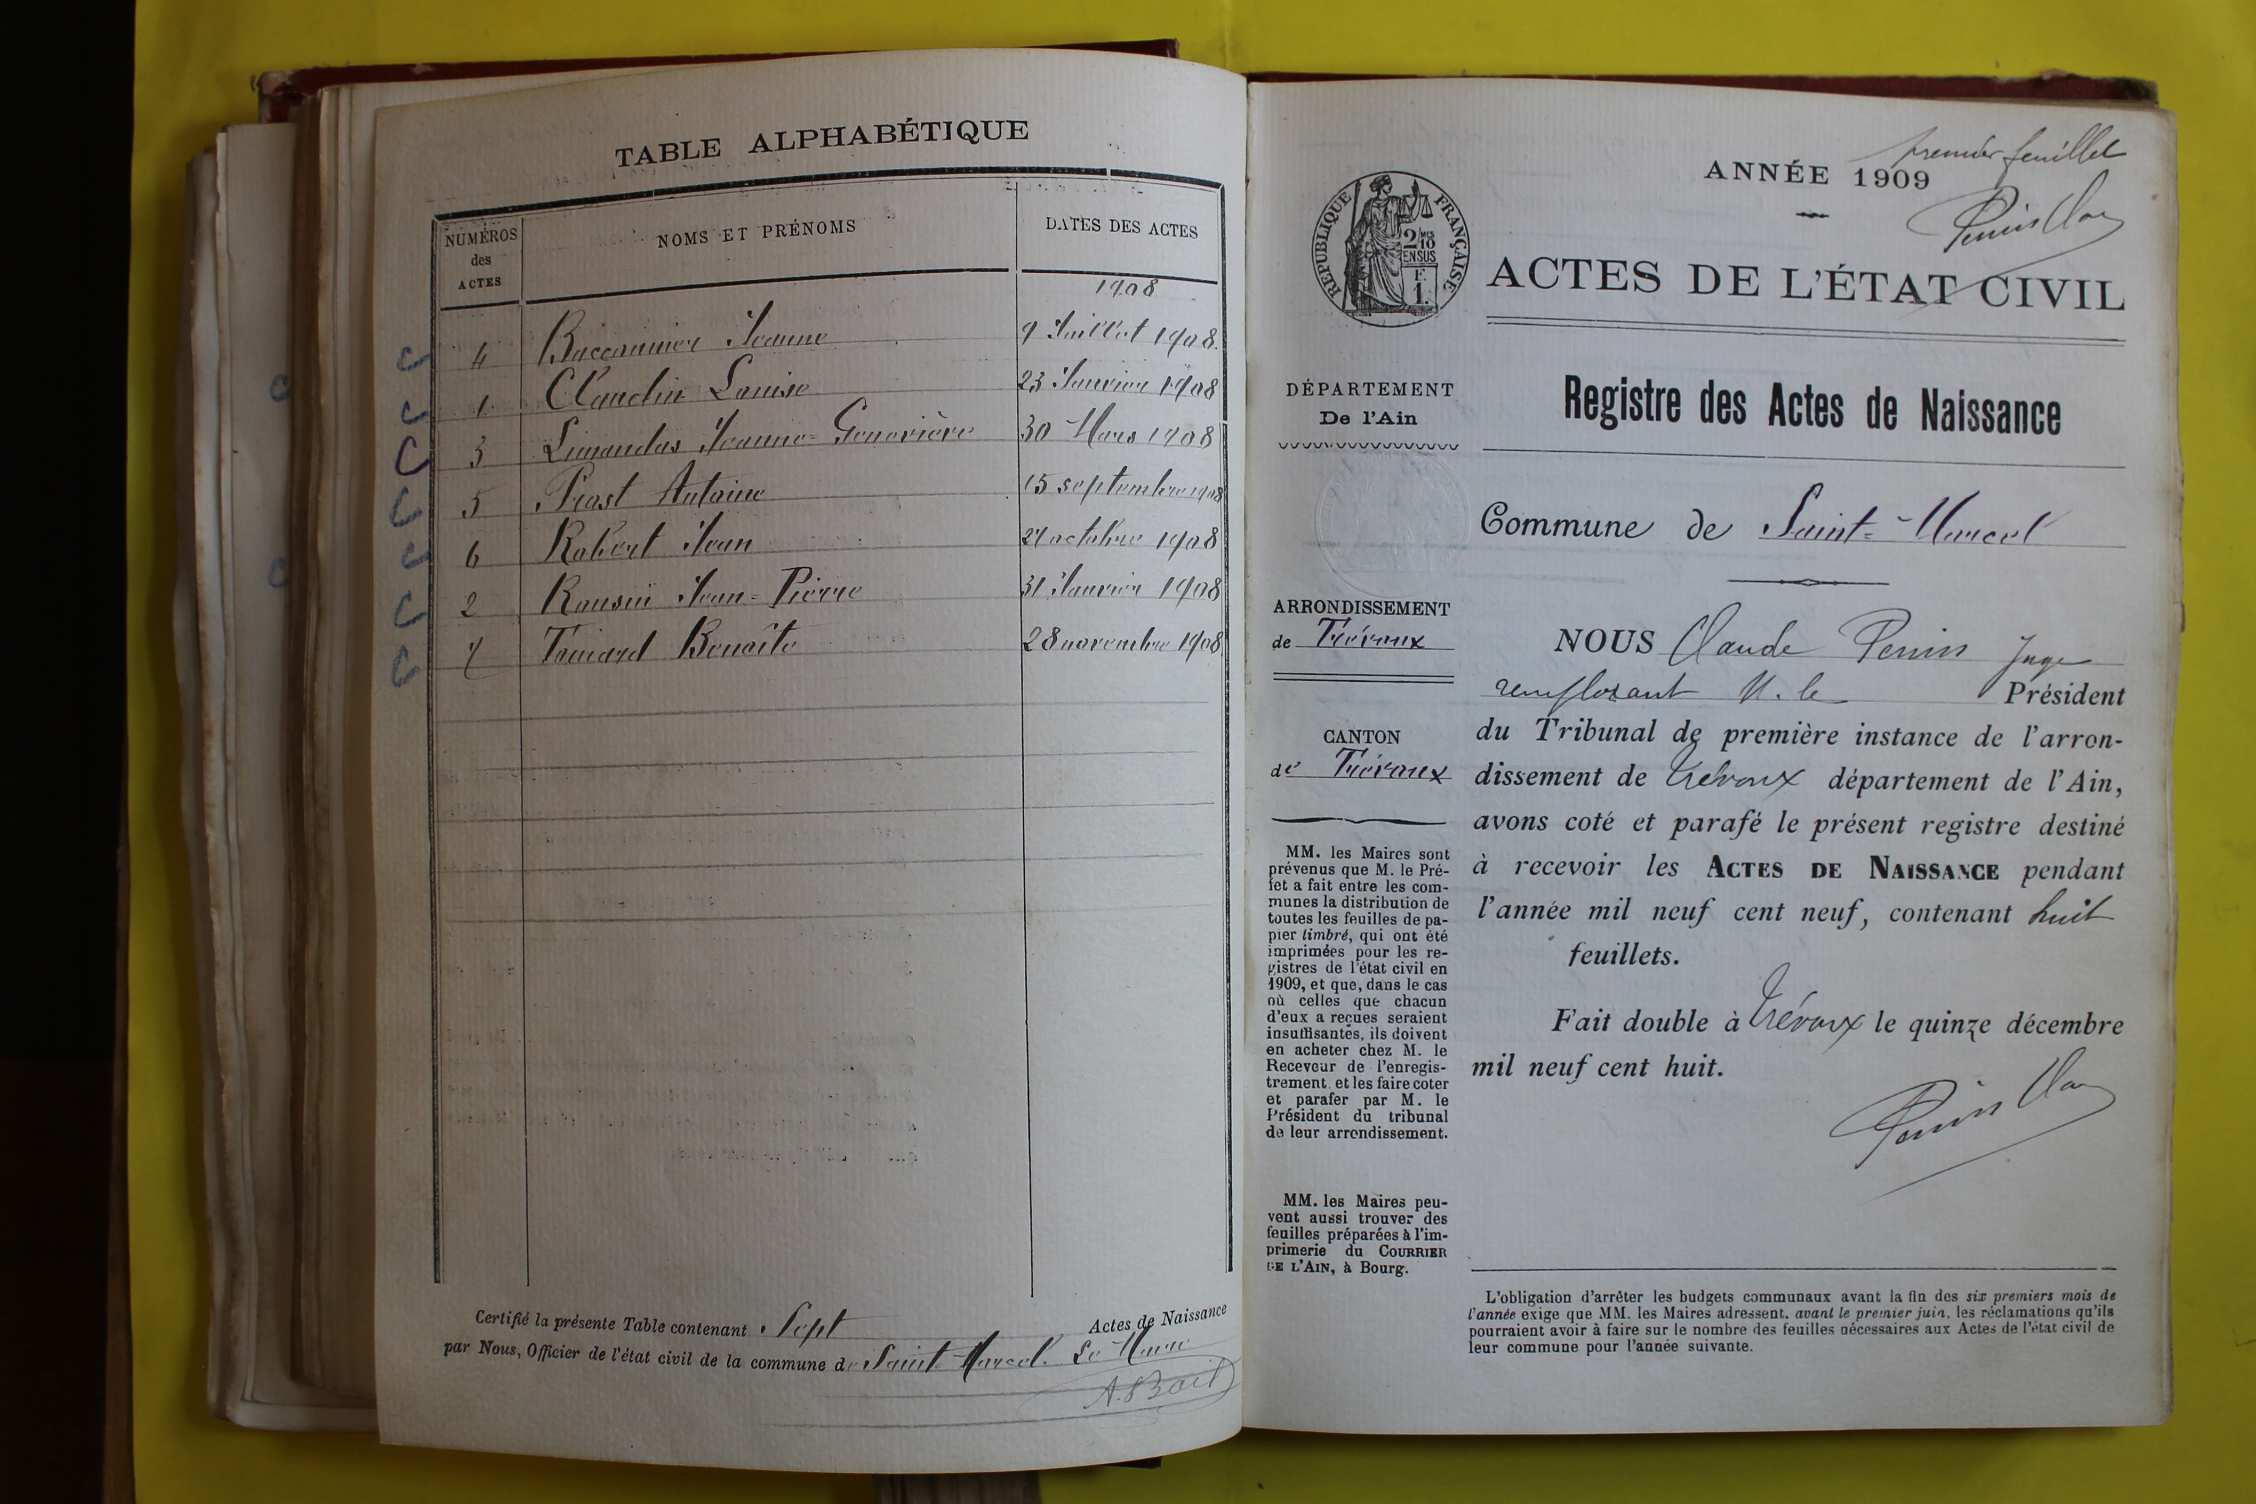 TABLE ALPHABÉTIQUE
NUMÉROS des ACTES
NOMS ET PRÉNOMS
DATES DES ACTES
1908
4 Baccounier Jeanne 9 Juillet 1908.
1 Claudin Louise 23 Janvier 1908
3 Limandas Jeanne-Geneviève 30 Mars 1908
5 Prost Antoine 15 septembre 1908
6 Robert Jean 27 octobre 1908
2 Jean-Pierre 31 Janvier 1908
7 Benoîte 28 novembre 1908
Certifié la présente Table contenant Sept Actes de Naissance
par Nous, Officier de l'état civil de la commune de Saint-Marcel. Le Maire
premier feuillet
ANNÉE 1909
RÉPUBLIQUE FRANÇAISE
2/10
EN SUS
F.
1.
ACTES DE L'ÉTAT CIVIL
DÉPARTEMENT
De l'Ain
Registre des Actes de Naissance
Commune de Saint-Marcel
ARRONDISSEMENT
de Trévoux
CANTON
de Trévoux
MM. les Maires sont
prévenus que M. le Pré-
fet a fait entre les com-
munes la distribution de
toutes les feuilles de pa-
pier timbré, qui ont été
imprimées pour les re-
gistres de l'état civil en
1909, et que, dans le cas
où celles que chacun
d'eux a reçues seraient
insuffisantes, ils doivent
en acheter chez M. le
Receveur de l'enregis-
trement et les faire coter
et parafer par M. le
Président du tribunal
de leur arrondissement.
MM. les Maires peu-
vent aussi trouver des
feuilles préparées à l'im-
primerie du COURRIER
DE L'AIN, à Bourg.
NOUS Claude Perrin Juge
remplaçant M. le Président
du Tribunal de première instance de l'arron-
dissement de Trévoux département de l'Ain,
avons coté et parafé le présent registre destiné
à recevoir les ACTES DE NAISSANCE pendant
l'année mil neuf cent neuf, contenant huit
feuillets.
Fait double à Trévoux le quinze décembre
mil neuf cent huit.
L'obligation d'arrêter les budgets communaux avant la fin des six premiers mois de
l'année exige que MM. les Maires adressent, avant le premier juin, les réclamations qu'ils
pourraient avoir à faire sur le nombre des feuilles nécessaires aux Actes de l'état civil de
leur commune pour l'année suivante.